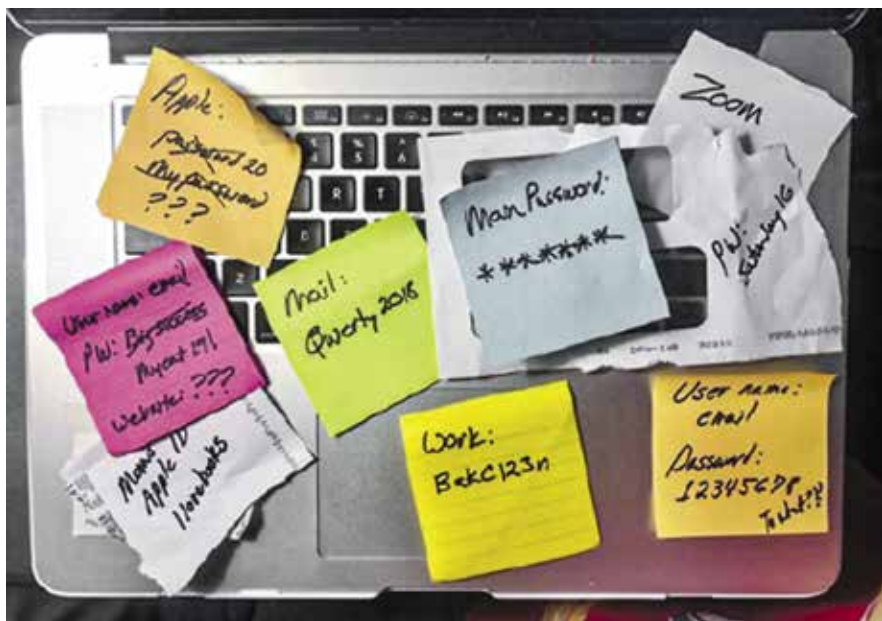 Apple:
password 20
My password
???
Zoom
PW:
Saturday 16
Main Password:
*******
User name: email
PW:
Mycat 19!
website: ???
Mail:
Qwerty 2018
Moms
Apple ID
Ilovebooks
Work:
BekC123n
User name:
email
Password:
12345678
To what?!?